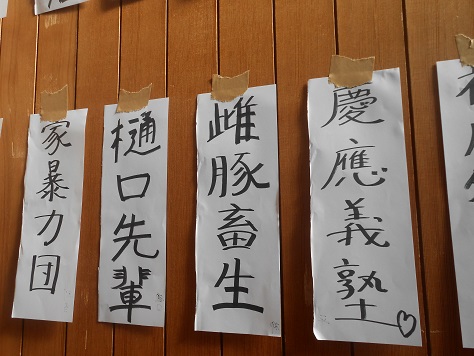 家暴力団
樋口先輩
雌豚畜生
慶應義塾